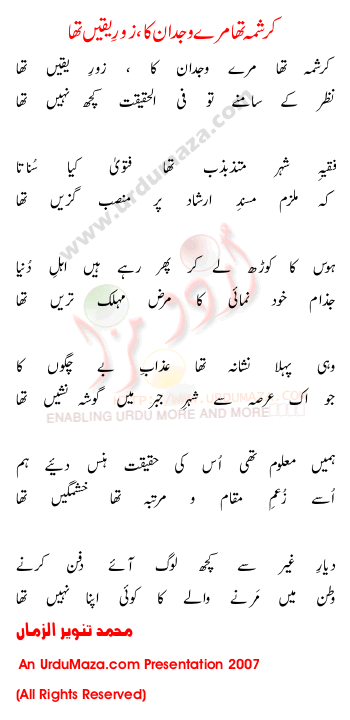 کرشمہ تھا مرے وجدان کا، زورِ یقیں تھا
کرشمہ تھا مرے وجدان کا ، زورِ یقیں تھا
نظر کے سامنے تو فی الحقیقت کچھ نہیں تھا
فقیہِ شہر متذبذب تھا فتویٰ کیا سُناتا
کہ ملزم مسندِ ارشاد پر منصب گزیں تھا
ہوس کا کوڑھ لے کر پھر رہے ہیں اہلِ دُنیا
جذام خود نمائی کا مرض مہلک تریں تھا
وہی پہلا نشانہ تھا عذابِ بے چگوں کا
جو اک عرصہ سے شہرِ جبر میں گوشہ نشیں تھا
ہمیں معلوم تھی اُس کی حقیقت ہنس دیئے ہم
اُسے زُعمِ مقام و مرتبہ تھا خشمگیں تھا
دیارِ غیر سے کچھ لوگ آئے دفن کرنے
وطن میں مَرنے والے کا کوئی اپنا نہیں تھا
محمد تنویر الزماں
An UrduMaza.com Presentation 2007
(All Rights Reserved)
www.urdumaza.com
اُردو مزا
HTTP://WWW.URDUMAZA.COM
ENABLING URDU MORE AND MORE